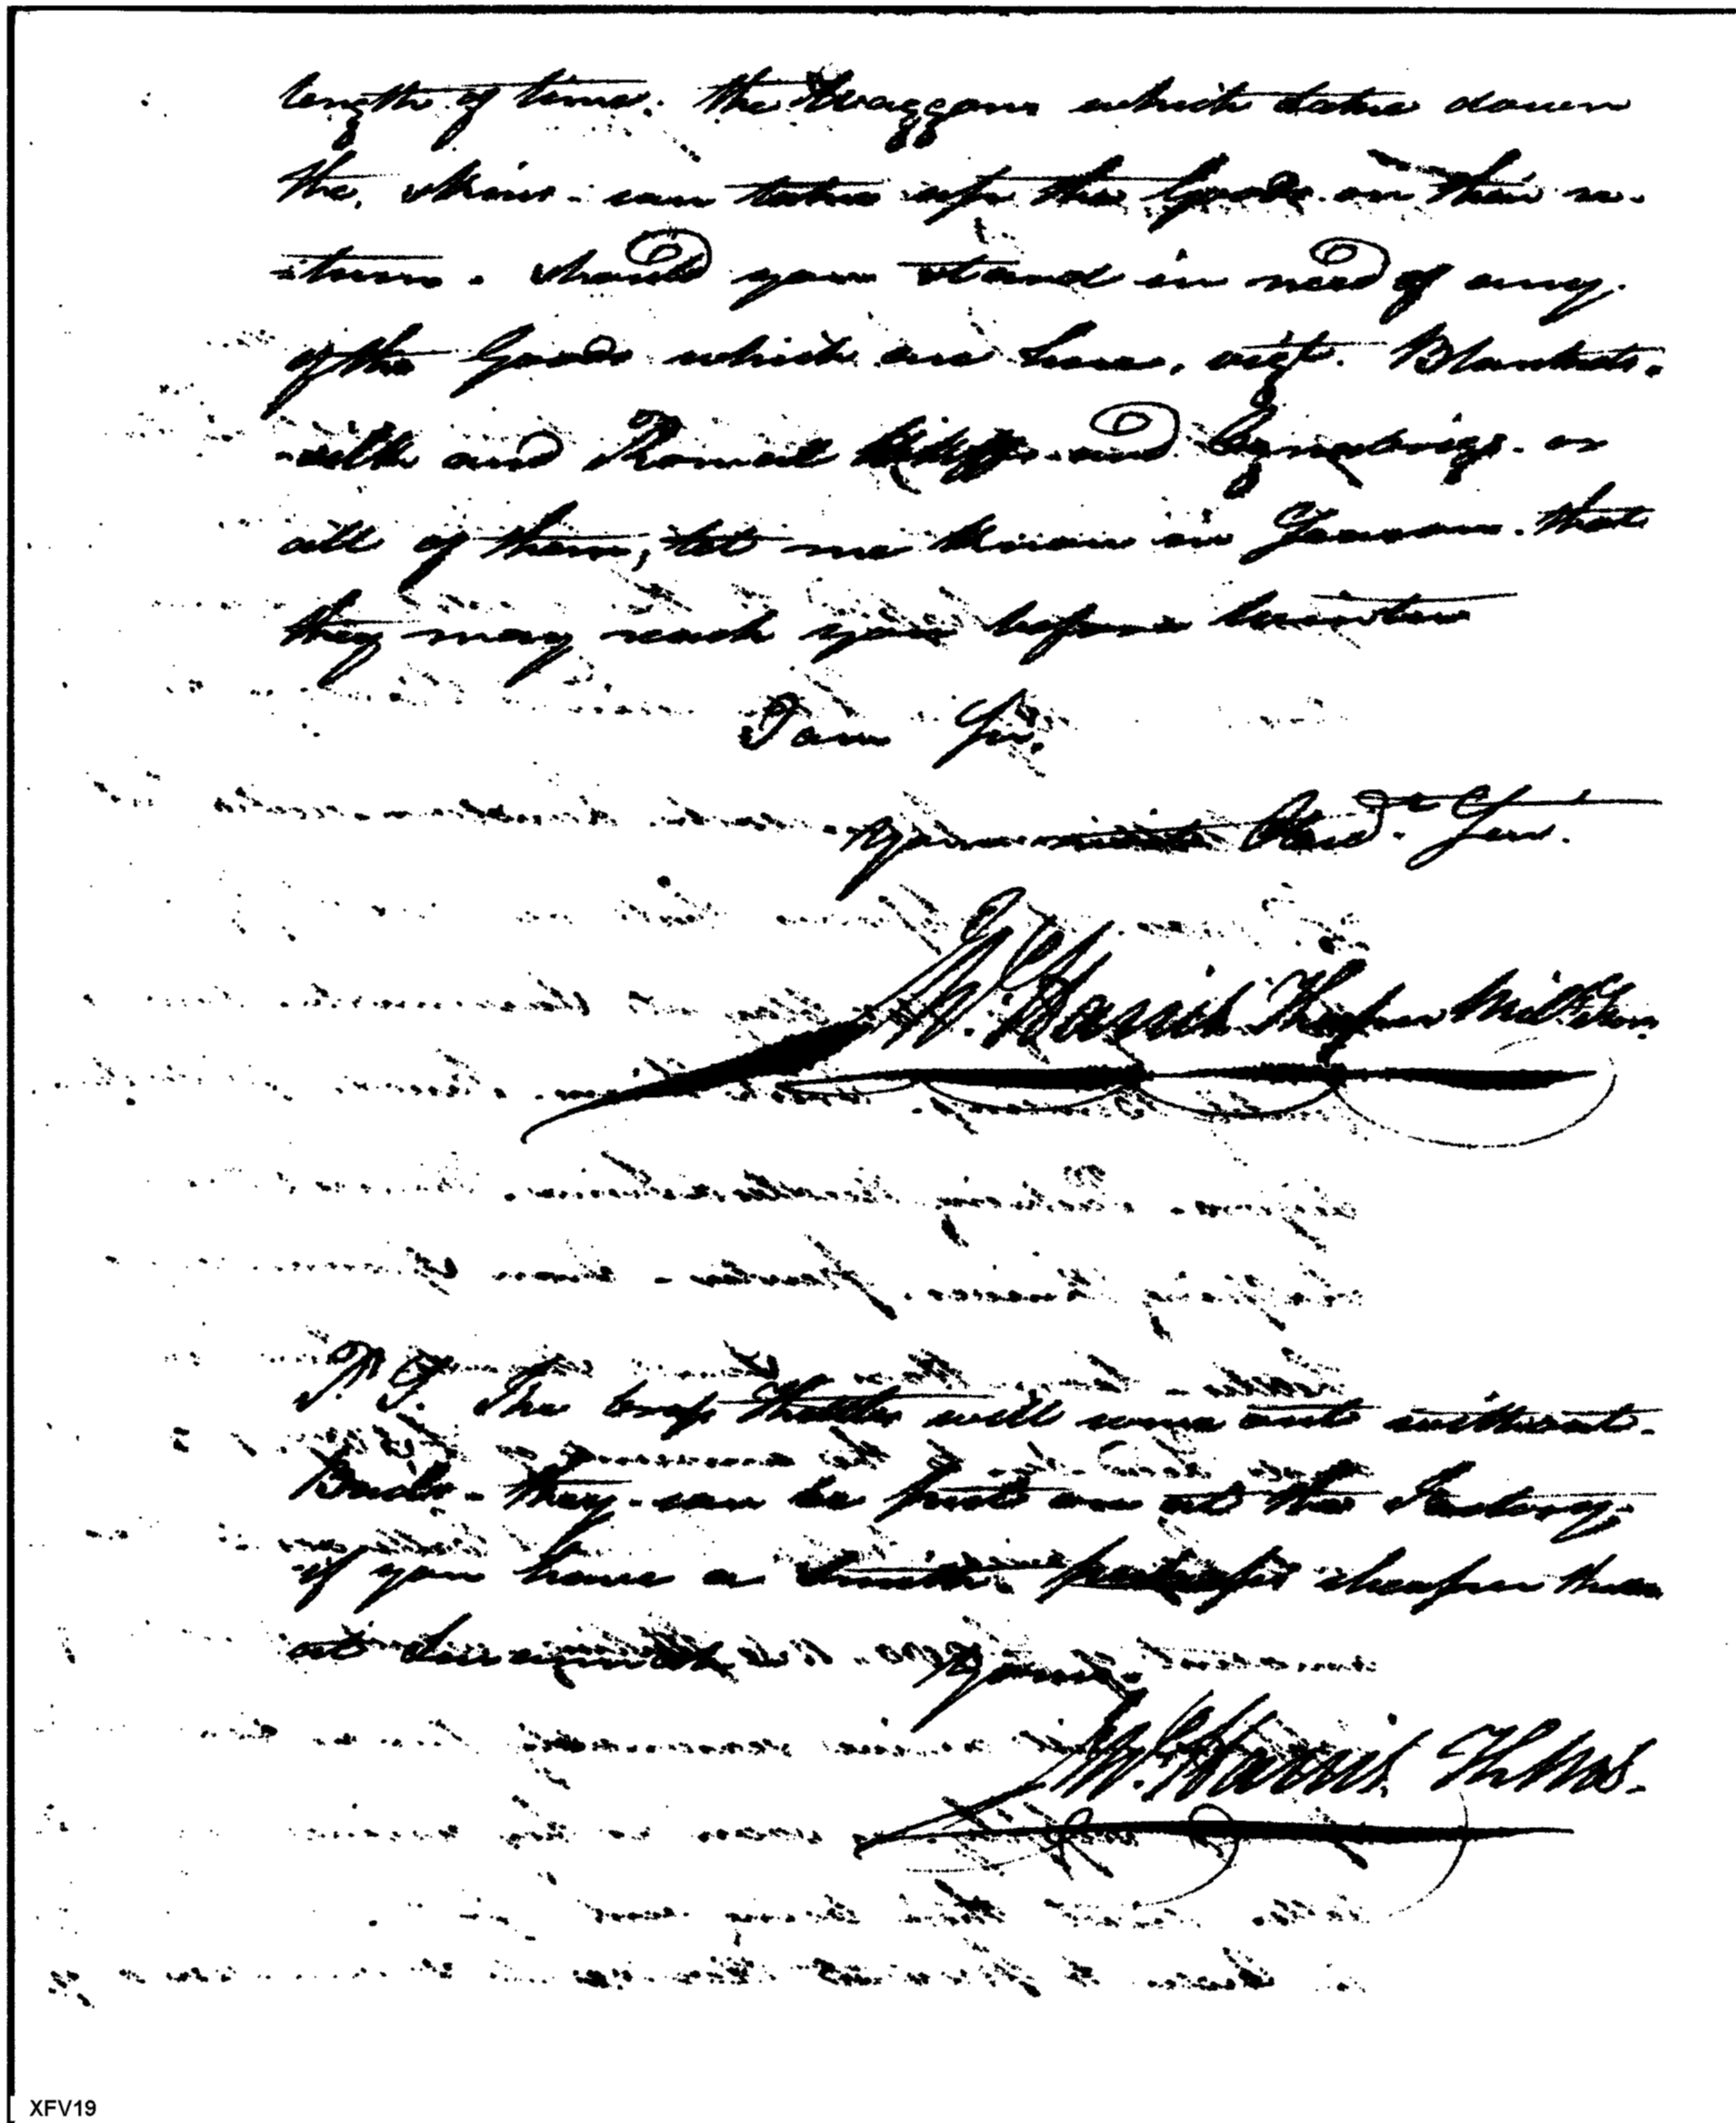 length of time. the Waggons which take down
the skins - can take up the Goods on their re-
-turn. should you stand in need of any
of the Goods which are here, vizt. Blankets.
silk and Romal Hkffs. and Oznabrigs. or
all of them, let me know in Season. that
they may reach you before winter
I am Sir,
Your Obed.t Serv.
W. Harris
P. S. The Traps will come out without
they can be put on at the Factory,
if you have a Smith. perhaps cheaper than
at Savannah Yours.
W. Harris
XFV19